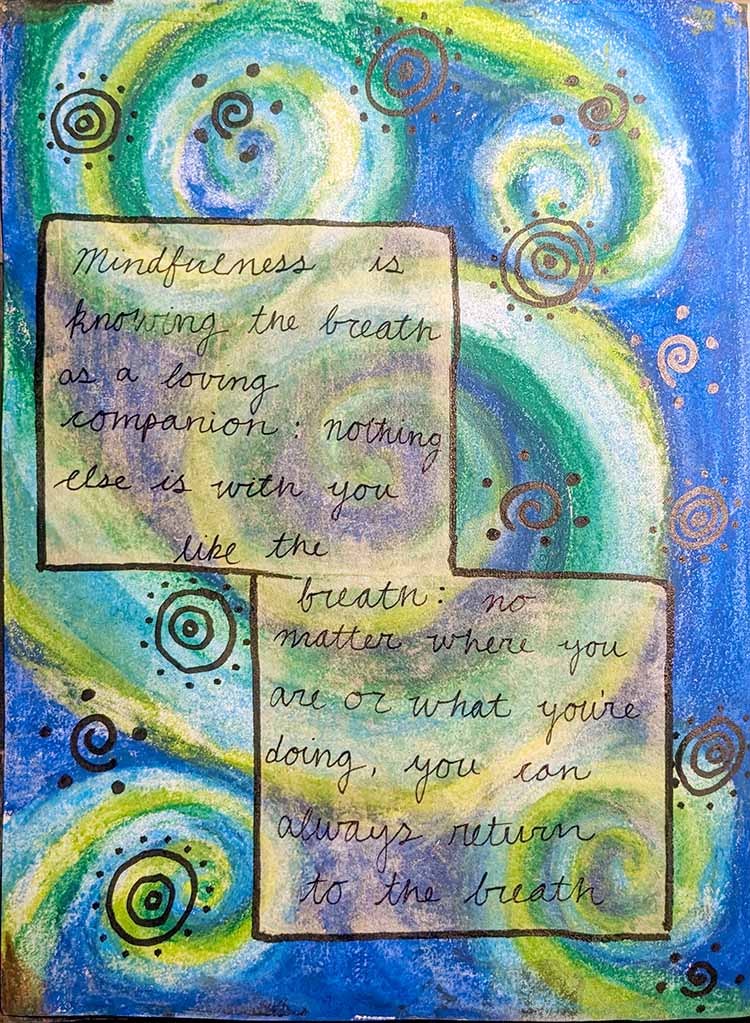 Mindfulness is
knowing the breath
as a loving
companion: nothing
else is with you
like the
breath: no
matter where you
are or what you're
doing, you can
always return
to the breath